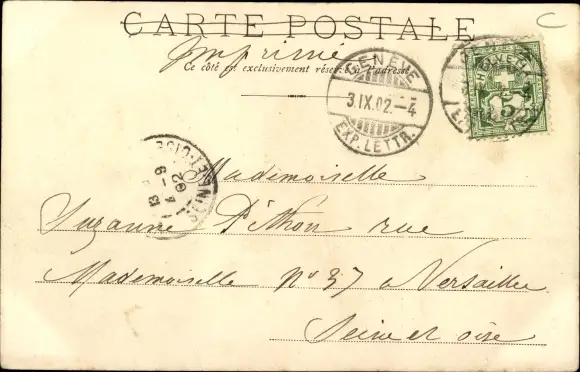 CARTE POSTALE
Imprimé
Ce côté est exclusivement réservé à l'adresse
GENÈVE
3.IX.02.-4
EXP. LETTR.
HELVETIA
5
C
Mademoiselle
Suzanne Pithon rue
Mademoiselle N° 37 à Versailles
Seine et oise